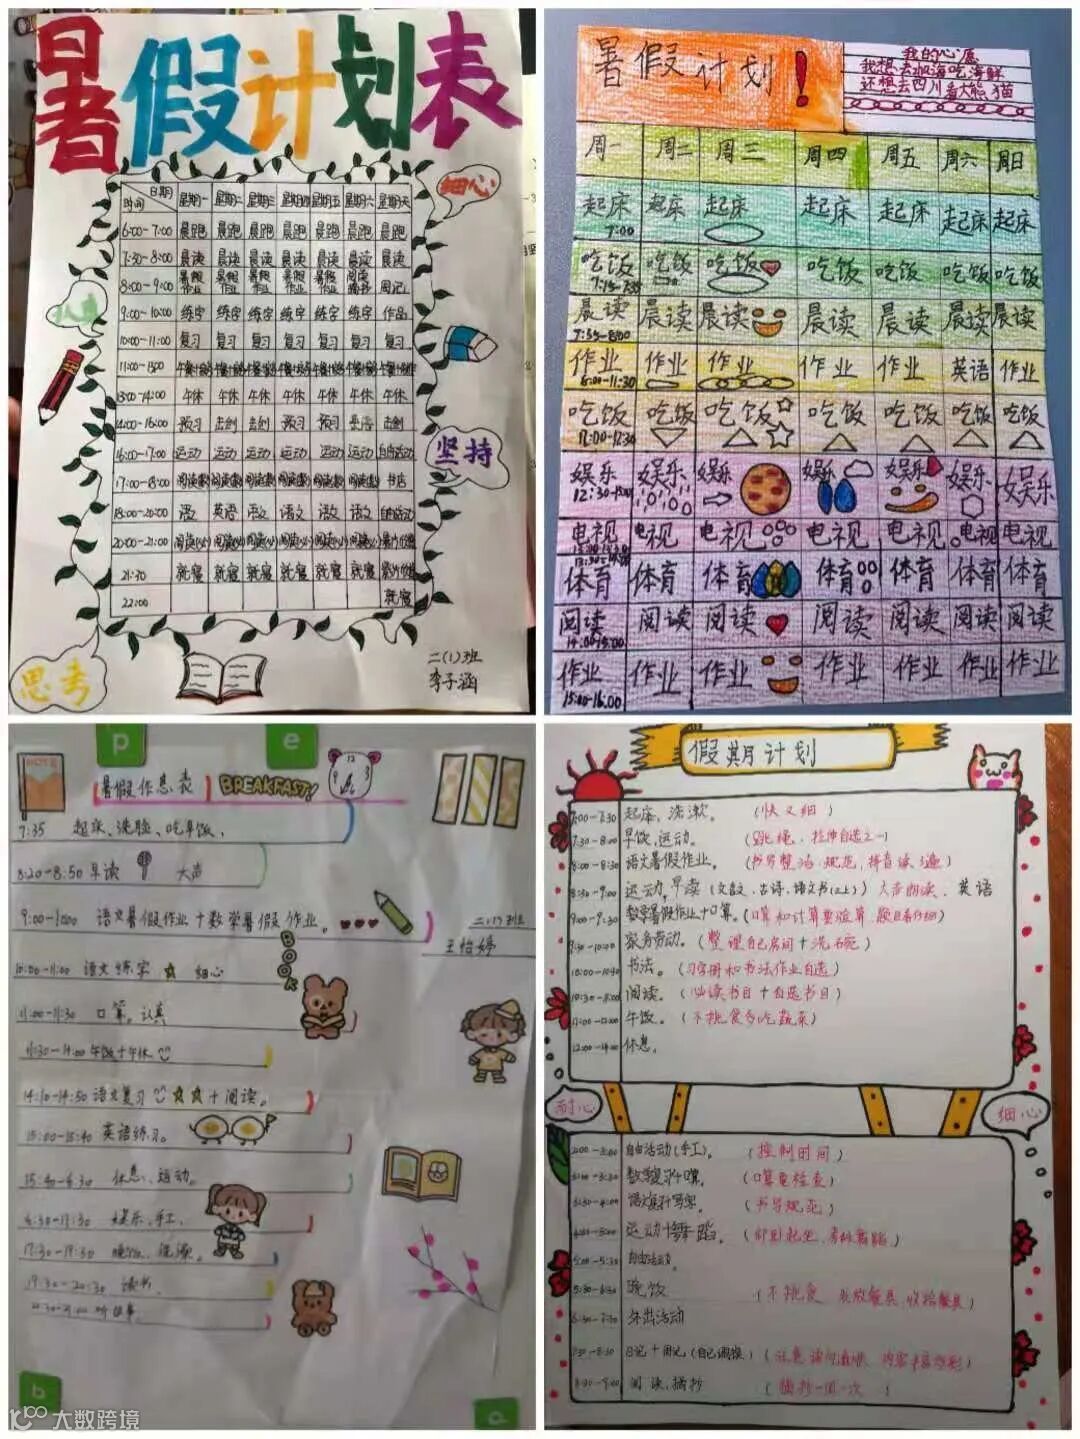 暑假计划表
细心
日期
时间 星期一 星期二 星期三 星期四 星期五 星期六 星期天
6:00-7:00 晨跑 晨跑 晨跑 晨跑 晨跑 晨跑 晨跑
7:30-8:00 晨读 晨读 晨读 晨读 晨读 晨读 晨读
8:00-9:00 暑假作业 暑假作业 暑假作业 暑假作业 暑假作业 阅读 周记
9:00-10:00 练字 练字 练字 练字 练字 练字 作品
10:00-11:00 复习 复习 复习 复习 复习 复习 复习
13:00-14:00 午休 午休 午休 午休 午休 午休 午休
14:00-16:00 预习 击剑 击剑 预习 击剑
16:00-17:00 运动 运动 运动 运动 运动 运动 自由活动
17:00-18:00 书店
18:00-20:00 语文 英语 语文 语文 语文 语文 自由活动
20:00-21:00
21:30 就寝 就寝 就寝 就寝 就寝 就寝
22:00 就寝
坚持
思考
二(1)班
李子涵
暑假计划!
我的心愿
我想去极海吃海鲜
还想去四川看大熊猫
周一 周二 周三 周四 周五 周六 周日
起床 起床 起床 起床 起床 起床 起床
7:00
吃饭 吃饭 吃饭 吃饭 吃饭 吃饭 吃饭
晨读 晨读 晨读 晨读 晨读 晨读 晨读
7:35-8:00
作业 作业 作业 作业 作业 英语 作业
8:00-11:30
吃饭 吃饭 吃饭 吃饭 吃饭 吃饭 吃饭
12:00-12:30
娱乐 娱乐 娱乐 娱乐 娱乐 娱乐 娱乐
电视 电视 电视 电视 电视 电视 电视
体育 体育 体育 体育 体育 体育 体育
阅读 阅读 阅读 阅读 阅读 阅读 阅读
14:00-15:00
作业 作业 作业 作业 作业 作业 作业
15:00-16:00
p e
NOTE
暑假作息表 BREAKFAST!
7:35 起床、洗脸、吃早饭、
8:20-8:50 早读 大声
9:00-10:00 语文暑假作业+数学暑假作业。
二(1)班
王怡婷
BOOK
10:00-11:00 语文练字 细心
11:00-11:30 口算。认真
11:30-14:00 午饭+午休
14:10-14:50 语文复习 +阅读。
15:00-15:40 英语练习。
15:40-16:30 休息、运动。
16:30-17:30 娱乐、手工、
17:30-19:30 晚饭、洗漱。
19:30-20:30 读书、
20:30-21:00 听故事。
b a
假期计划
7:00-7:30 起床、洗漱。 (快又细)
7:30-8:00 早饭、运动。 (跳绳、拉伸自选之一)
8:00-8:30 语文暑假作业。 (书写整洁、规范,拼音读3遍)
8:30-9:00 运动,早读(文言文、古诗、语文书(二上)) 大声朗读、英语
9:00-9:30 数学暑假作业+口算。(口算和计算要验算,题目看仔细)
9:30-10:00 家务劳动。(整理自己房间+洗碗)
10:00-10:30 书法。(习字册和书法作业自选)
10:30-11:00 阅读。(必读书目+自选书目)
11:00-12:00 午饭。(不挑食多吃蔬菜)
12:00-14:00 休息。
耐心
细心
2:00-3:00 自由活动(手工)。 (控制时间)
3:00-3:30 数学复习+口算。 (口算要检查)
3:30-4:00 语文复习+写字。 (书写规范)
4:00-5:00 运动+舞蹈。 (仰卧起坐、舞蹈)
5:00-5:30 自由活动。
5:30-6:30 晚饭 (不挑食 收拾餐具)
6:30-7:30 外出活动
7:30-8:30 日记+周记(自己调换)
8:30-9:00 阅读、摘抄 (摘抄一周一次)
大数跨境